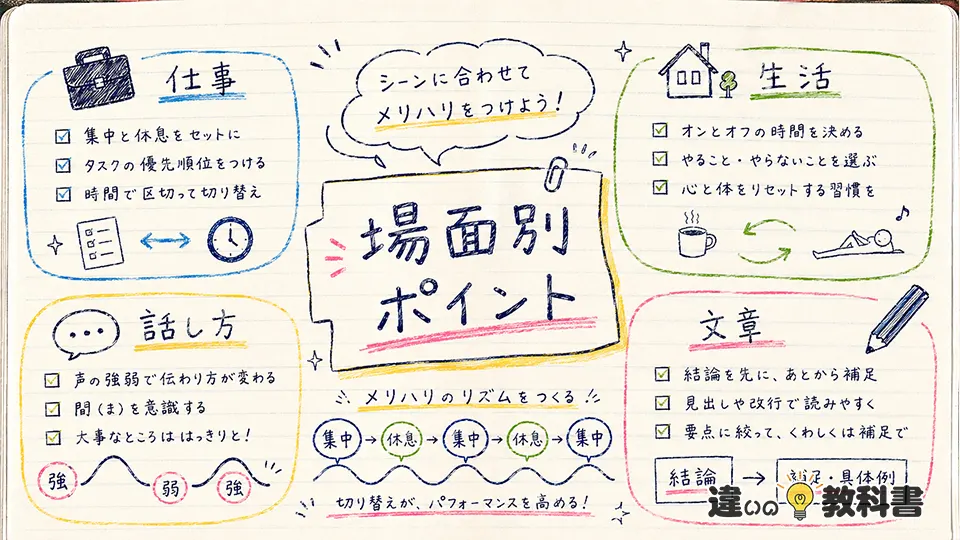 シーンに合わせて
メリハリをつけよう!
場面別
ポイント
仕事
集中と休息をセットに
タスクの優先順位をつける
時間で区切って切り替え
生活
オンとオフの時間を決める
やること・やらないことを選ぶ
心と体をリセットする習慣を
話し方
声の強弱で伝わり方が変わる
間(ま)を意識する
大事なところははっきりと!
強 弱 強
メリハリのリズムをつくる
集中→休息→集中→休息→集中
切り替えが、パフォーマンスを高める!
文章
結論を先に、あとから補足
見出しや改行で読みやすく
要点に絞って、くわしくは補足で
結論→補足・具体例
違いの教科書